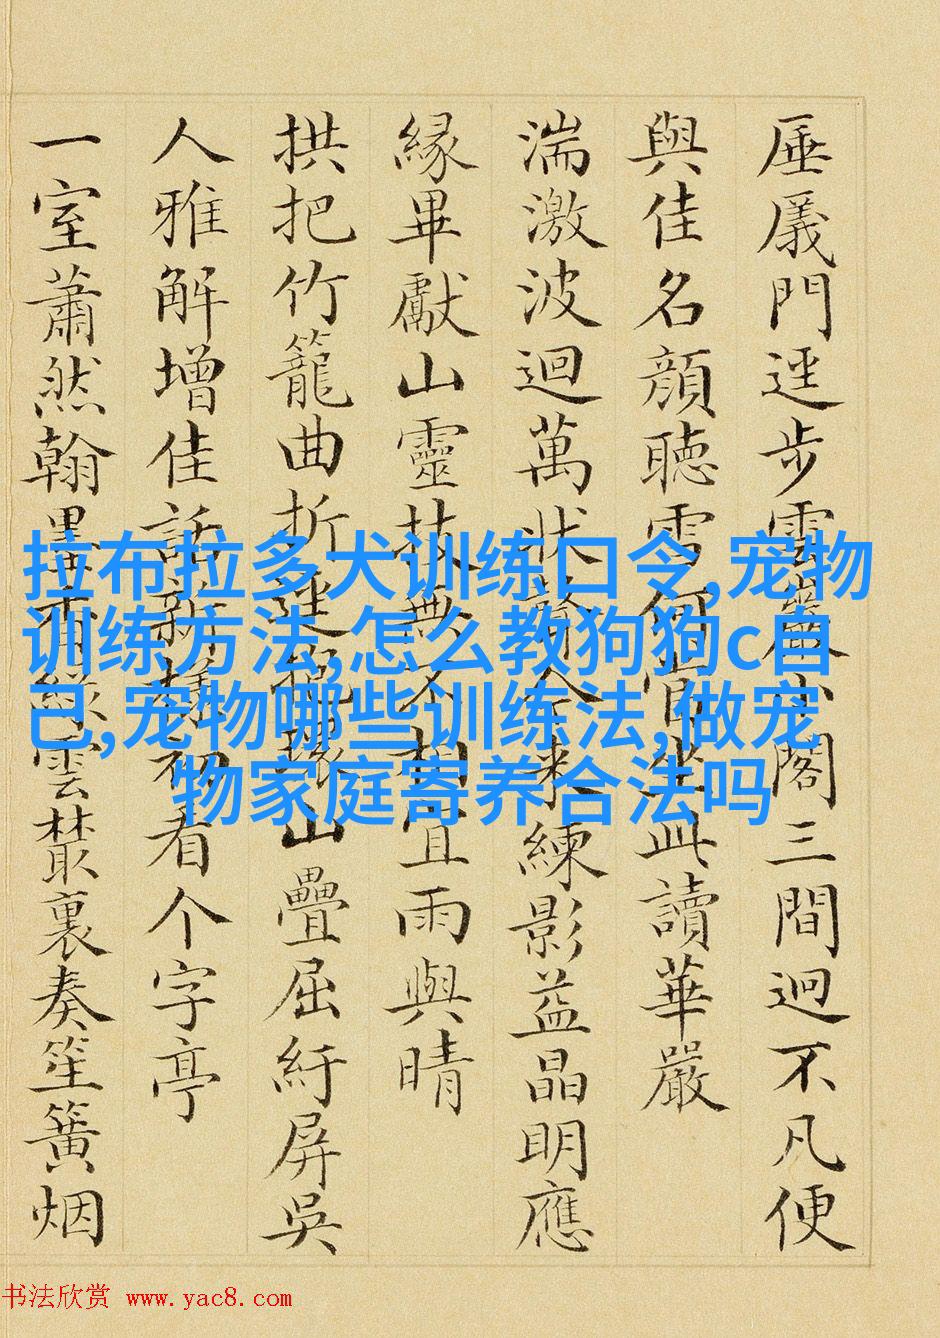 厜㕒門逕步雲巖小閣三間迥不凡便
與佳名顔聽雪何坐此讀華嚴
湍激波迴萬狀今來練影益晶明應
緣畢獻山靈技無不相宜雨與晴
拱把竹籠曲折山疊屈紆屏吳
人雅解增佳話新初看个字亭
一室蕭然翰墨雲叢裏奏笙簧烟
拉布拉多犬训练口令,宠物
训练方法,怎么教狗狗c自
己,宠物哪些训练法,做宠
物家庭寄养合法吗
书法欣赏 www.yac8.com